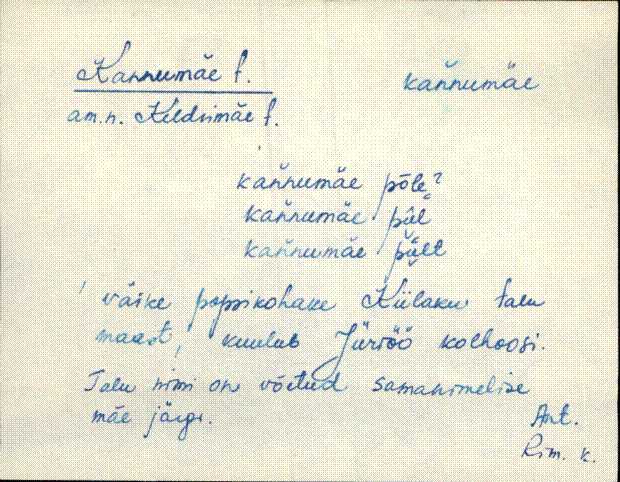 Kannumäe t. kan̆numäe
am.n. Keldrimäe t.
kan̆numäe põle?
kan̆numäe pääl
kan̆numäe päält
väike popsikohake Külaku talu
maast, kuulub Jüriöö kolhoosi.
Talu nimi on võetud samanimelise
mäe järgi.
Ant.
Rim. k.